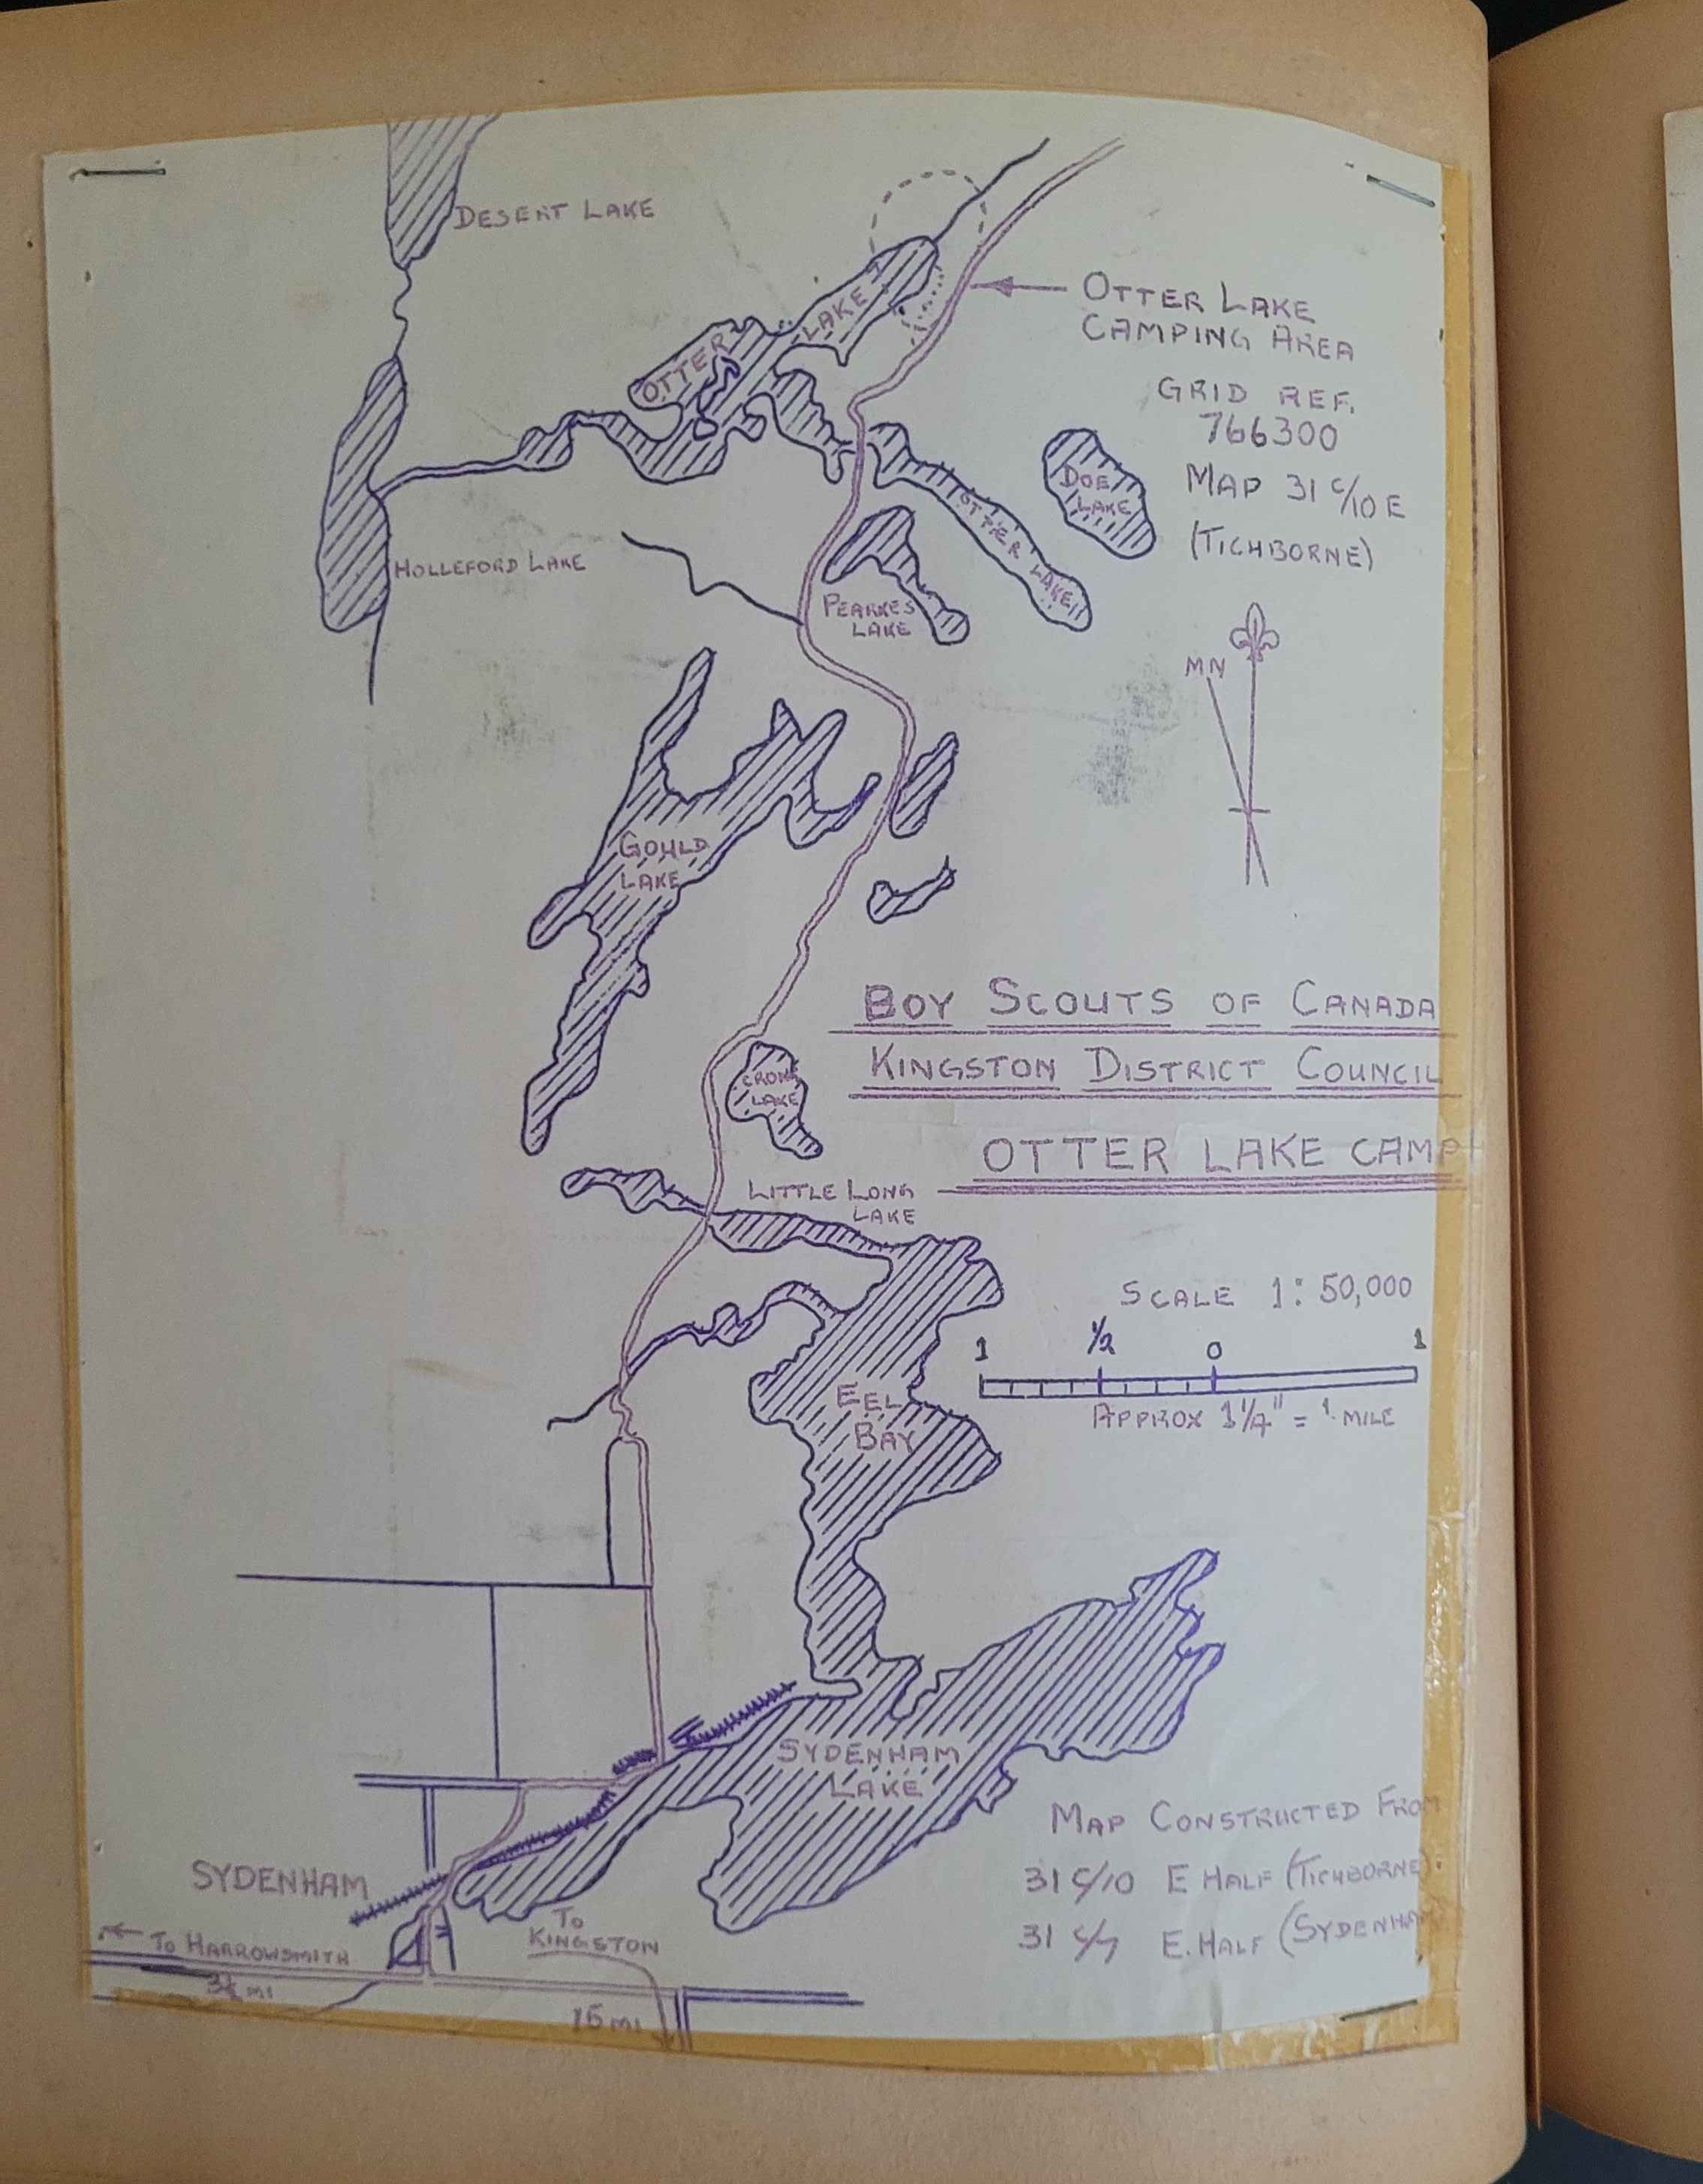 DESERT LAKE
OTTER LAKE
OTTER LAKE
CAMPING AREA
GRID REF.
766300
MAP 31 C/10 E
(TICHBORNE)
DOE
LAKE
OTTER LAKE
HOLLEFORD LAKE
PEARKES
LAKE
MN
GOULD
LAKE
BOY SCOUTS OF CANADA
KINGSTON DISTRICT COUNCIL
OTTER LAKE CAMP
CRONK
LAKE
LITTLE LONG
LAKE
SCALE 1:50,000
1 1/2 0 1
APPROX 1 1/4" = 1 MILE
EEL
BAY
SYDENHAM
LAKE
MAP CONSTRUCTED FROM
31 C/10 E HALF (TICHBORNE)
31 C/7 E. HALF (SYDENHAM)
SYDENHAM
TO HARROWSMITH
MI
TO
KINGSTON
15 MI